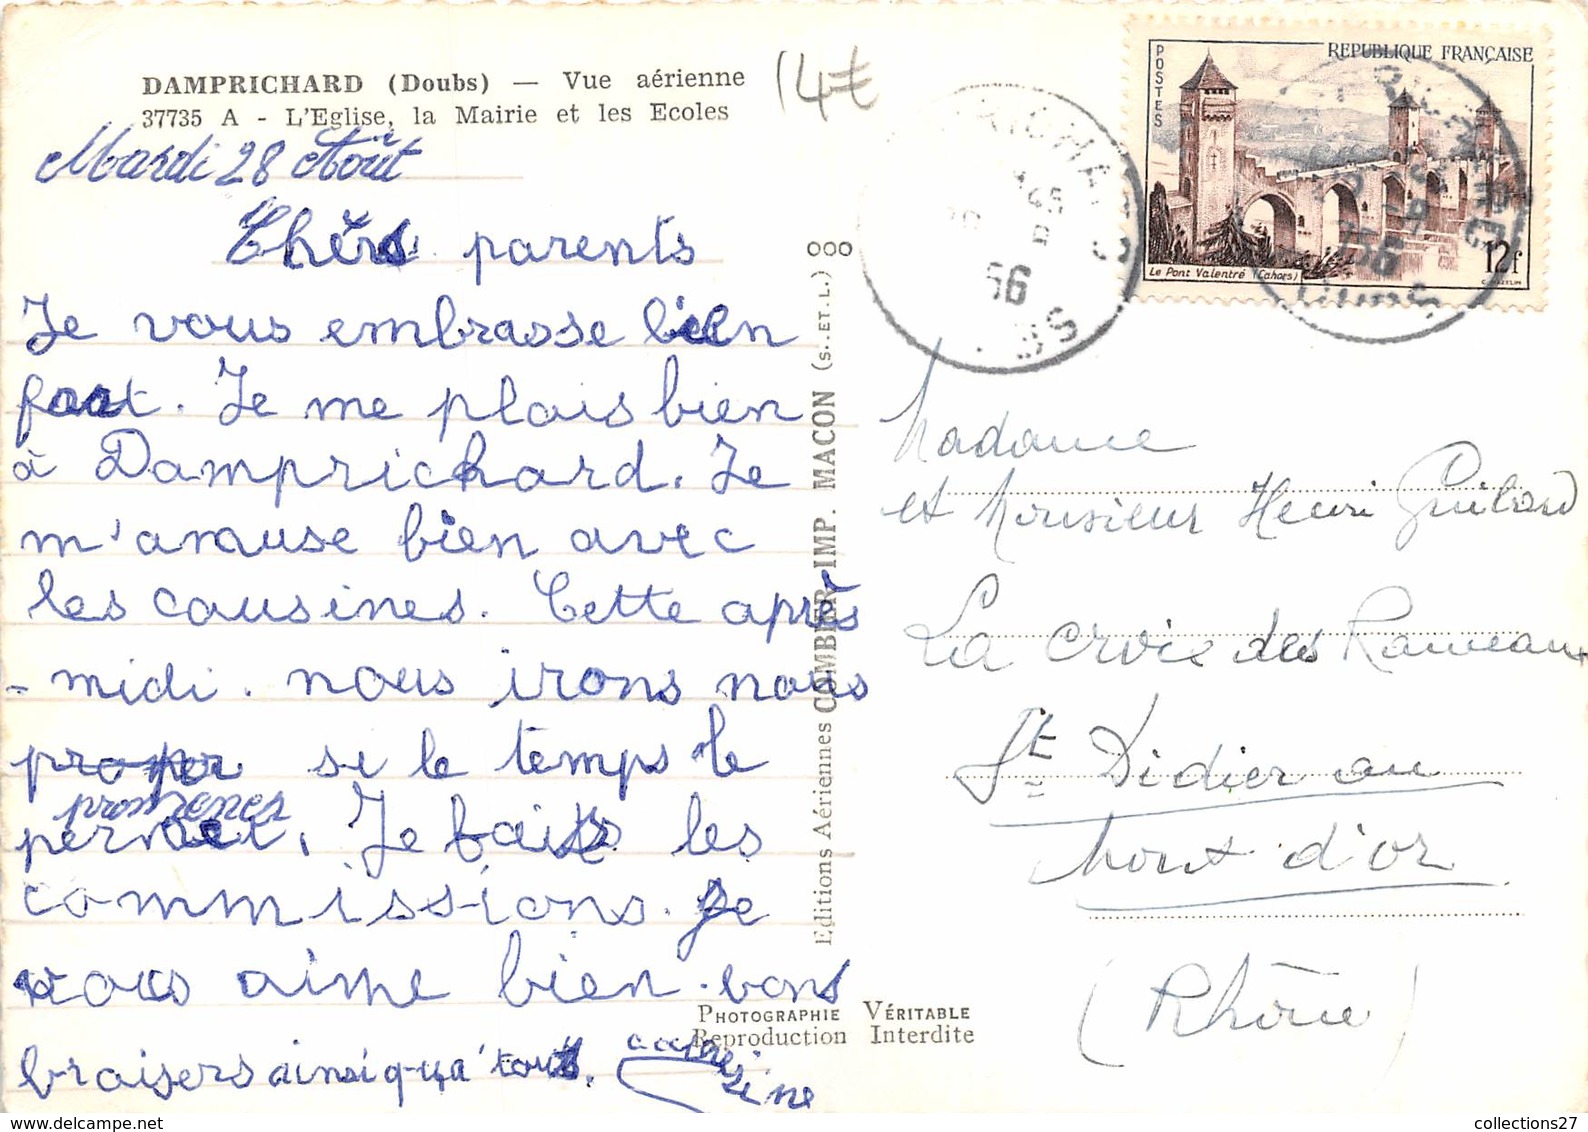 DAMPRICHARD (Doubs) — Vue aérienne
37735 A - L'Eglise, la Mairie et les Ecoles
14€
Mardi 28 Août
Chers parents
Je vous embrasse bien
fort. Je me plais bien
à Damprichard. Je
m'amuse bien avec
les cousines. Cette après
-midi. nous irons nous
promener si le temps le
permet. Je fais les
commissions. Je
vous aime bien. bons
braisers ainsi qu'à tous.
Editions Aériennes COMBIER IMP. MACON (S.-ET-L.)
PHOTOGRAPHIE VÉRITABLE
Reproduction Interdite
POSTES
REPUBLIQUE FRANÇAISE
Le Pont Valentré (Cahors)
12f
C. MAZELIN
56
Madame
et Monsieur Henri Guilard
La Croix des Rameaux
St Didier au
Mont d'or
(Rhône)
collections27